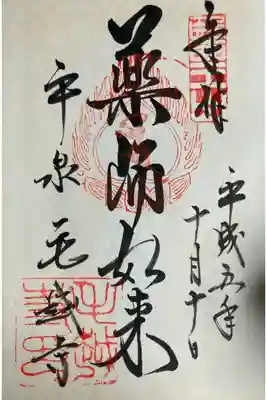 奉拝
平成五年
十月十日
薬師如来
平泉毛越寺